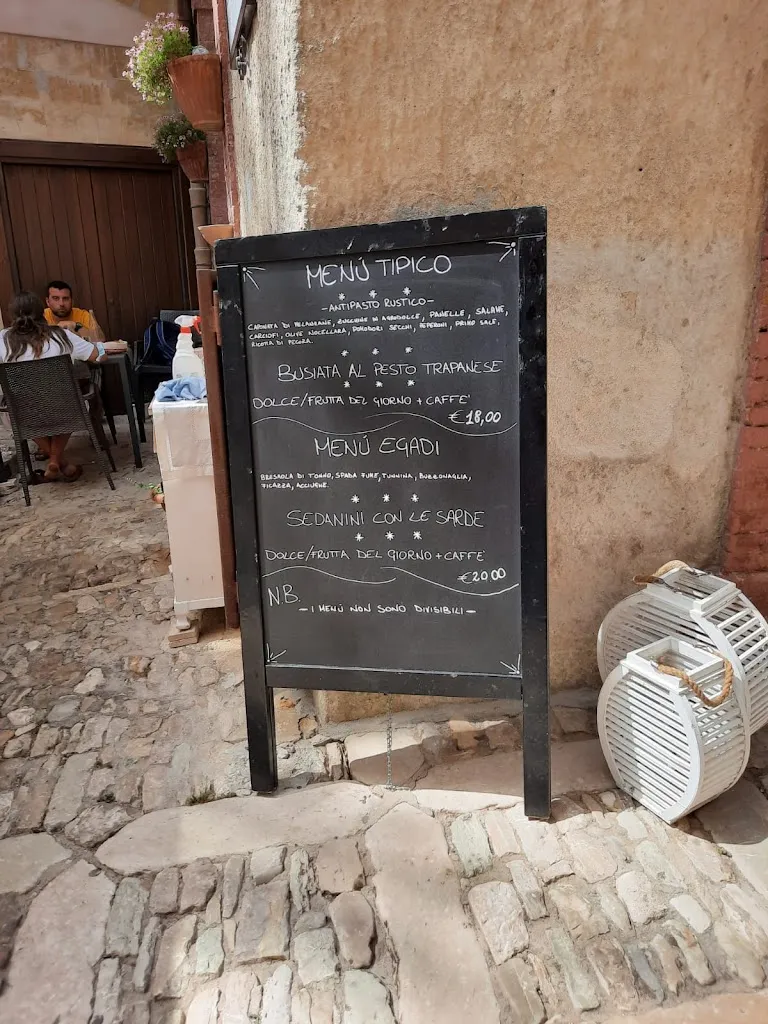 MENÚ TIPICO
* * *
-ANTIPASTO RUSTICO-
CAPONATA DI MELANZANE, ZUCCHINE IN AGRODOLCE, PANELLE, SALAME,
CARCIOFI, OLIVE NOCELLARA, POMODORI SECCHI, PEPERONI, PRIMO SALE,
RICOTTA DI PECORA.
* * *
BUSIATA AL PESTO TRAPANESE
* * *
DOLCE/FRUTTA DEL GIORNO + CAFFE'
€ 18,00
MENÚ EGADI
BRESAOLA DI TONNO, SPADA FUME', TUNNINA, BUZZONAGLIA,
FICAZZA, ACCIUGHE.
* * *
SEDANINI CON LE SARDE
* * *
DOLCE/FRUTTA DEL GIORNO + CAFFE'
€ 20,00
N.B.
- I MENÚ NON SONO DIVISIBILI -